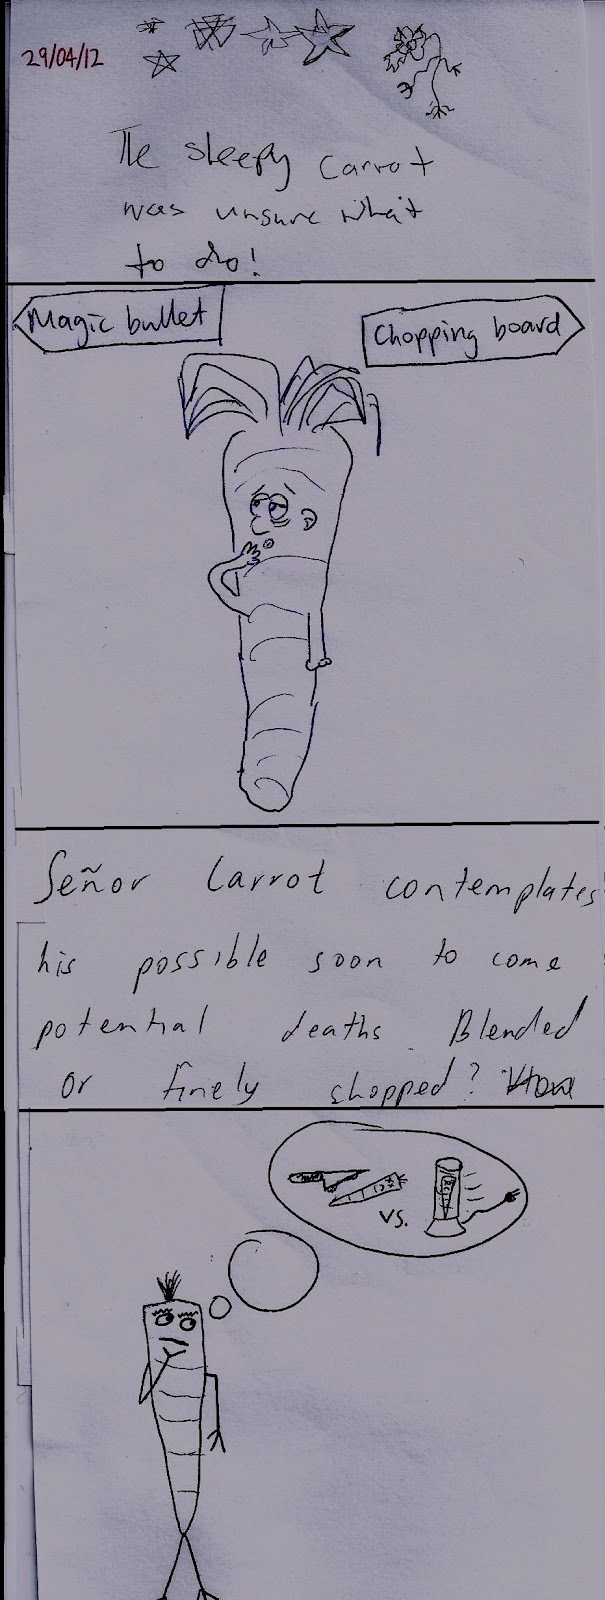 29/04/12
The sleepy carrot
was unsure what
to do!
Magic bullet
Chopping board
Señor Carrot contemplates
his possible soon to come
potential deaths. Blended
or finely chopped?
vs.